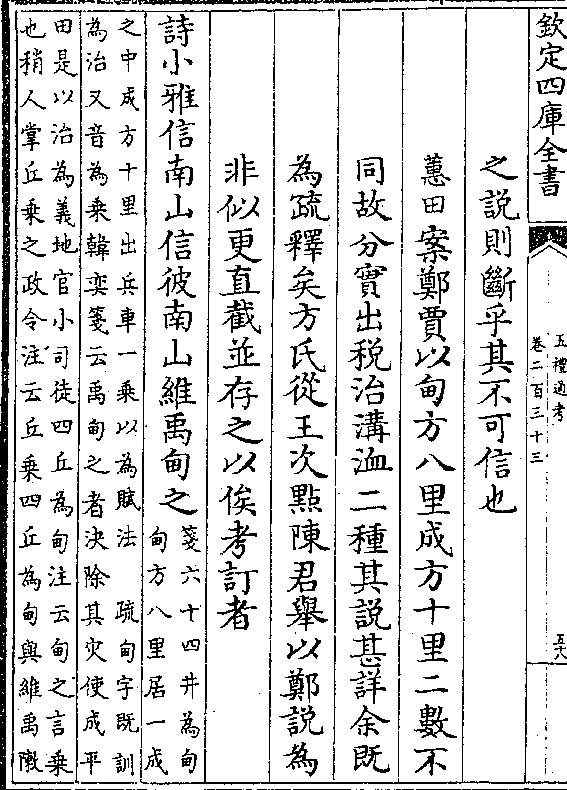 欽定四庫全書
五禮通考
卷二百三十三
五八
之說則斷乎其不可信也
蕙田案鄭賈以甸方八里成方十里二數不
同故分實出稅治溝洫二種其說甚詳余既
為疏釋矣方氏從王次點陳君舉以鄭說為
非似更直截並存之以俟考訂者
詩小雅信南山信彼南山維禹甸之
箋六十四井為甸
甸方八里居一成
之中成方十里出兵車一乘以為賦法 疏甸字既訓
為治又音為乘韓奕箋云禹甸之者決除其灾使成平
田是以治為義地官小司徒四丘為甸注云甸之言乘
也稍人掌丘乘之政令注云丘乘四丘為甸與維禹敶